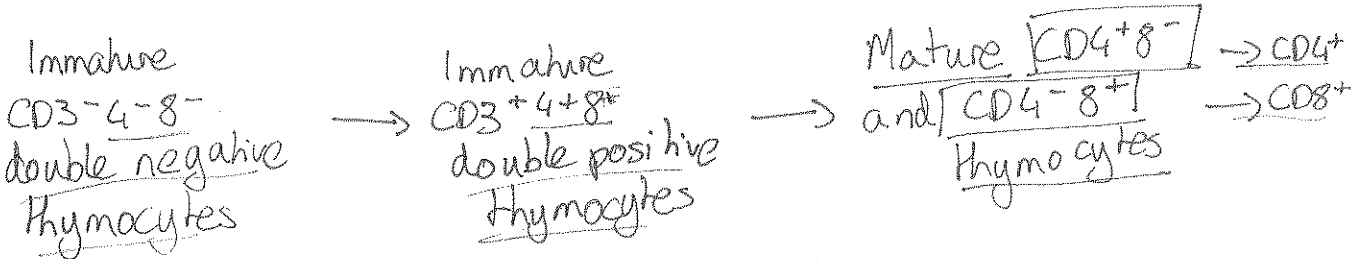 Immature
CD3⁻4⁻8⁻
double negative
thymocytes
→
Immature
CD3⁺4⁺8⁺
double positive
thymocytes
→
Mature CD4⁺8⁻ → CD4⁺
and CD4⁻8⁺ → CD8⁺
thymocytes